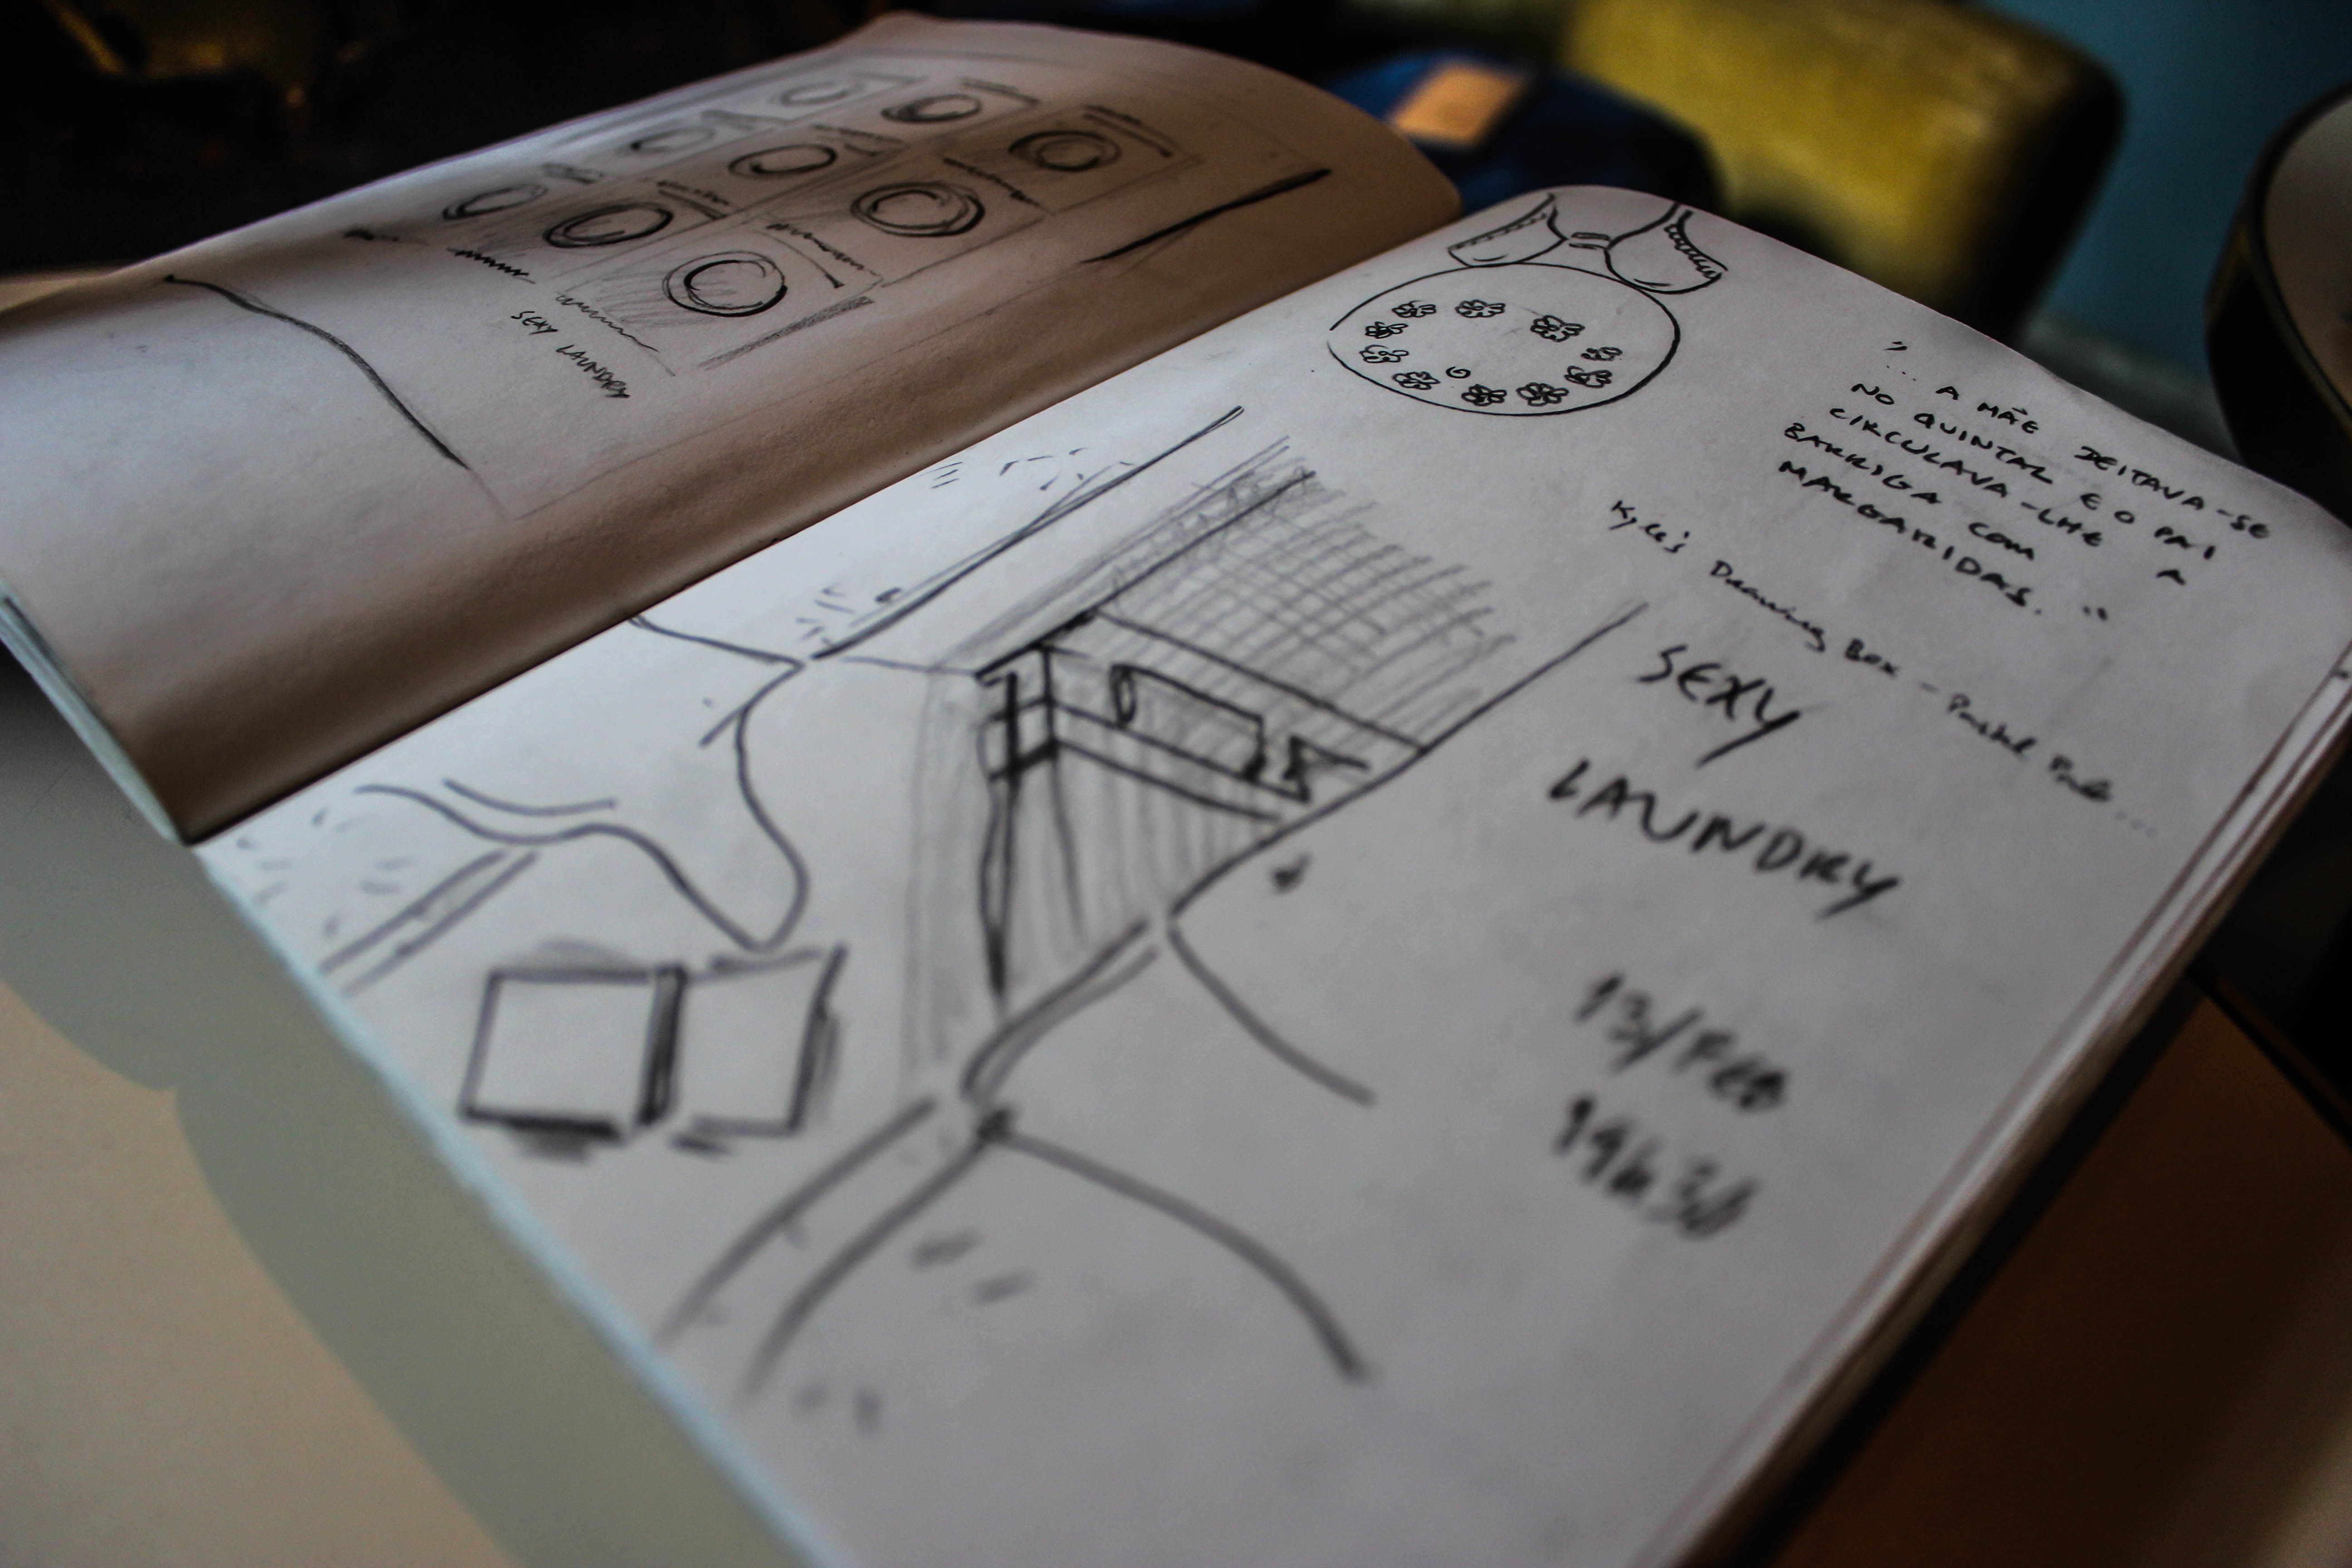 SEXY LAUNDRY
"... A MÃE DEITAVA-SE
NO QUINTAL E O PAI
CIRCULAVA-LHE A
BARRIGA COM
MARGARIDAS."
Kyle's Drawing Box -
SEXY
LAUNDRY
13/FEB
19h30